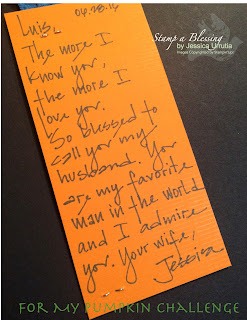 04.28.14
Luis,
The more I
know you,
the more I
love you.
So blessed to
call you my
husband. You
are my favorite
man in the world
and I admire
you. Your wife,
Jessica
Stamp a Blessing
by Jessica Urrutia
Images Copyrighted by StampinUp!
FOR MY PUMPKIN CHALLENGE